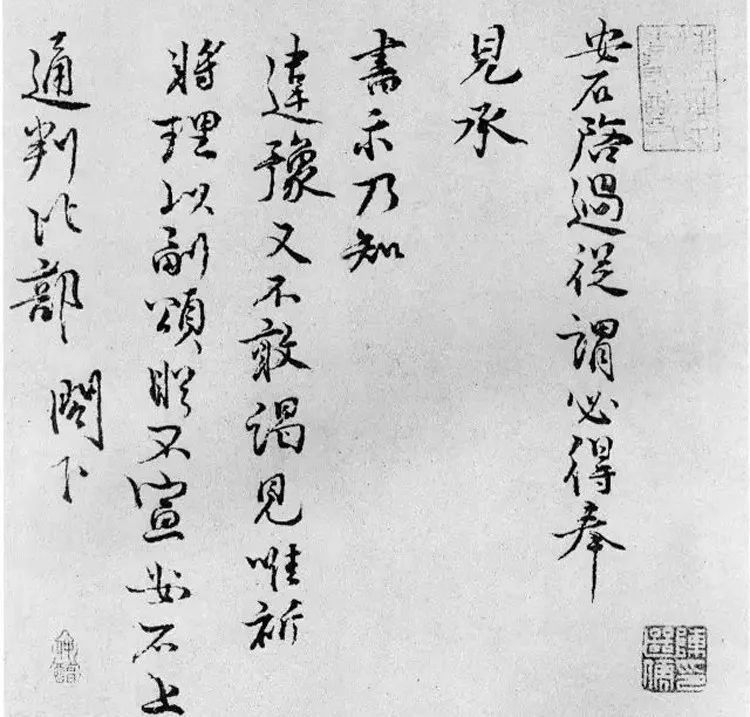 安石啓過從謂必得奉
見承
書示乃知
違豫又不敢謁見唯祈
將理以副頌睎不宣安石上
通判比部 閣下